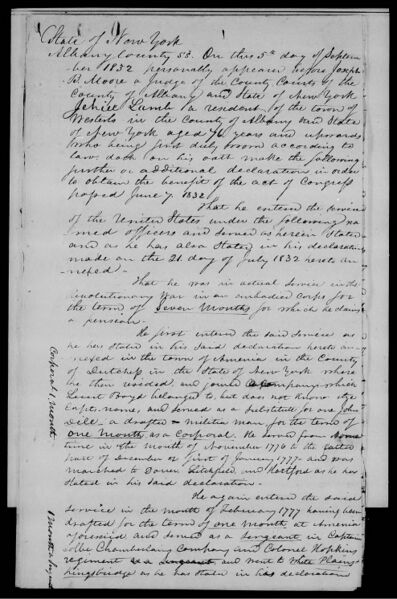 State of New York
Albany County SS. On this 5th day of Septem-
ber 1832 personally appears before Joseph
R. Moore a Judge of the County Courts of the
County of Albany and State of New York
Jehiel Lamb a resident of the town of
Westerlo in the County of Albany and State
of New York aged 76 years and upwards
who being first duly sworn according to
law doth on his oath make the following
further or additional declaration in order
to obtain the benefit of the act of Congress
passed June 7. 1832.
That he entered the service
of the United States under the following na-
med officers and served as herein stated
and as he has also stated in his declaration
made on the 21 day of July 1832 hereto an-
nexed.
That he was in actual service in the
revolutionary war in an embodied corps for
the term of Seven Months for which he claims
a pension.
He first entered the said service as
he has stated in his said declaration hereto an-
nexed in the town of Amenia in the County
of Dutchess in the State of New York where
he then resided and joined a company which
Lieut Boyd belonged to, but does not know the
Capt. name, and served as a substitute for one John
Dell a drafted militia man for the term of
one month as a Corporal. He served from some
time in the month of November 1776 to the latter
part of December or first of January 1777 and was
marched to Dover Litchfield, and Hartford as he has
stated in his said declaration.
He again entered the said
service in the month of February 1777 having been
drafted for the term of one month at Amenia
aforesaid and served as a Sergeant in Captain
Chamberlang Company and Colonel Hopkins
regiment as a sergeant and went to White Plains
Kingsbridge as he has stated in his declaration
Corporal 1. month
1 Month a Sergeant